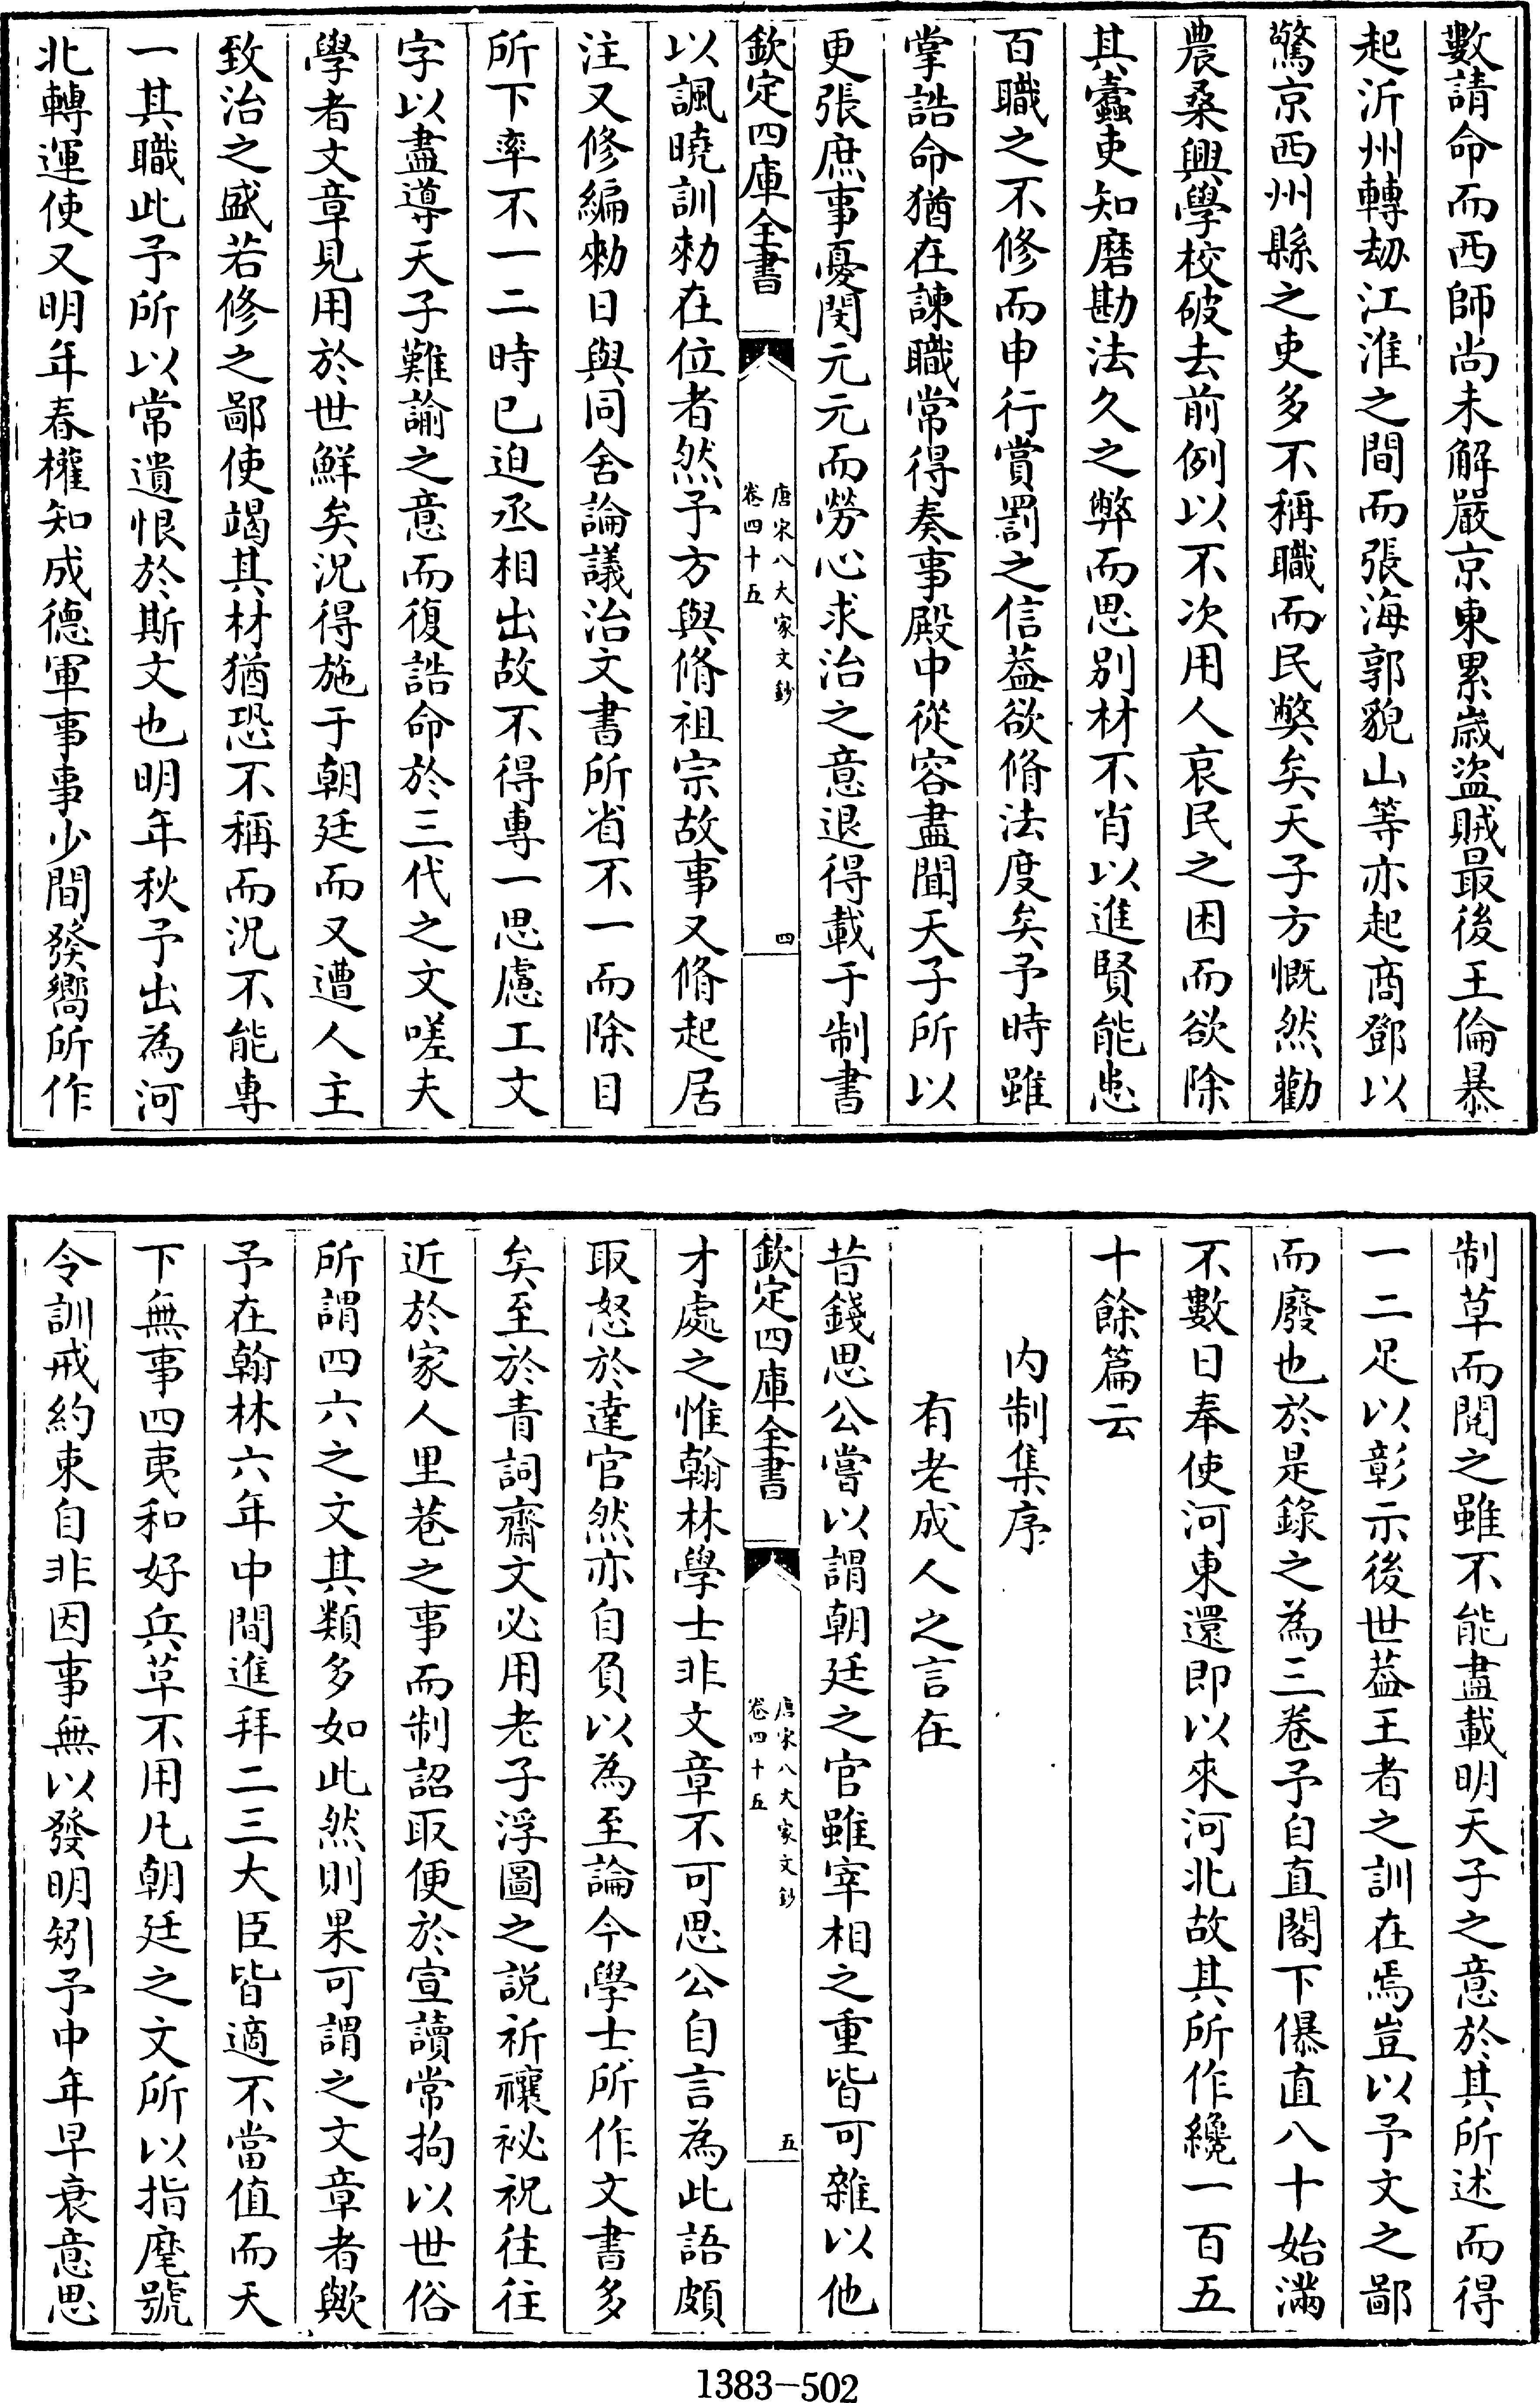 數請命而西師尚未解嚴京東累歲盜賊最後王倫暴
起沂州轉刼江淮之間而張海郭貌山等亦起商鄧以
驚京西州縣之吏多不稱職而民獘矣天子方慨然勸
農桑興學校破去前例以不次用人哀民之困而欲除
其蠧吏知磨勘法久之弊而思别材不肖以進賢能患
百職之不修而申行賞罰之信葢欲脩法度矣予時雖
掌誥命猶在諫職常得奏事殿中從容盡聞天子所以
更張庶事憂閔元元而勞心求治之意退得載于制書
欽定四庫全書
唐宋八大家文鈔
卷四十五
四
以諷曉訓勑在位者然予方與脩祖宗故事又脩起居
注又修編勑日與同舍論議治文書所省不一而除目
所下率不一二時已迫丞相出故不得專一思慮工文
字以盡導天子難諭之意而復誥命於三代之文嗟夫
學者文章見用於世鮮矣況得施于朝廷而又遭人主
致治之盛若修之鄙使竭其材猶恐不稱而況不能專
一其職此予所以常遺恨於斯文也明年秋予出為河
北轉運使又明年春權知成德軍事事少間發嚮所作
制草而閱之雖不能盡載明天子之意於其所述而得
一二足以彰示後世葢王者之訓在焉豈以予文之鄙
而廢也於是錄之為三卷予自直閣下儤直八十始滿
不數日奉使河東還即以來河北故其所作纔一百五
十餘篇云
内制集序
有老成人之言在
昔錢思公嘗以謂朝廷之官雖宰相之重皆可雜以他
欽定四庫全書
唐宋八大家文鈔
卷四十五
五
才處之惟翰林學士非文章不可思公自言為此語頗
取怒於達官然亦自負以為至論今學士所作文書多
矣至於青詞齋文必用老子浮圖之説祈禳祕祝往往
近於家人里巷之事而制詔取便於宣讀常拘以世俗
所謂四六之文其類多如此然則果可謂之文章者歟
予在翰林六年中間進拜二三大臣皆適不當值而天
下無事四夷和好兵革不用凡朝廷之文所以指麾號
令訓戒約束自非因事無以發明矧予中年早衰意思
1383-502